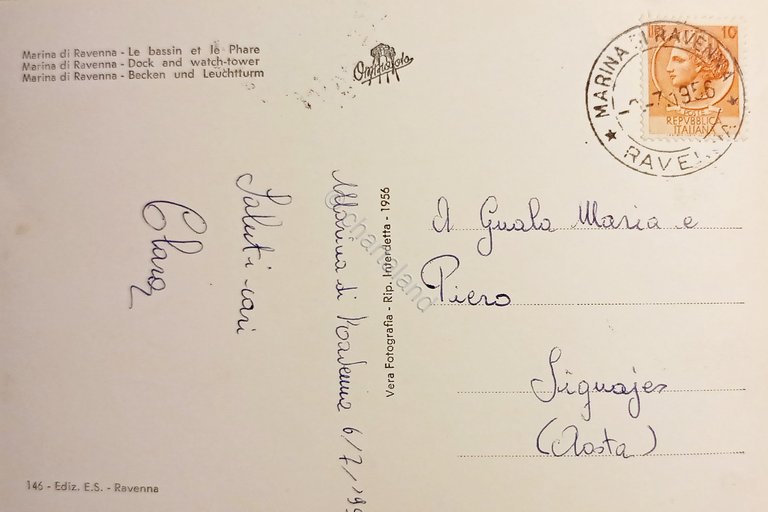 Marina di Ravenna - Le bassin et le Phare
Marina di Ravenna - Dock and watch-tower
Marina di Ravenna - Becken und Leuchtturm
Ominafoto
10
MARINA DI RAVENNA
7.1956
RAVENNA
POSTE
REPVBBLICA
ITALIANA
Marina di Ravenna 6/7/19
Saluti cari
Clara
Vera Fotografia - Rip. Interdetta - 1956
©chartaland
A Guala Maria e
Piero
Signayes
(Aosta)
146 - Ediz. E.S. - Ravenna